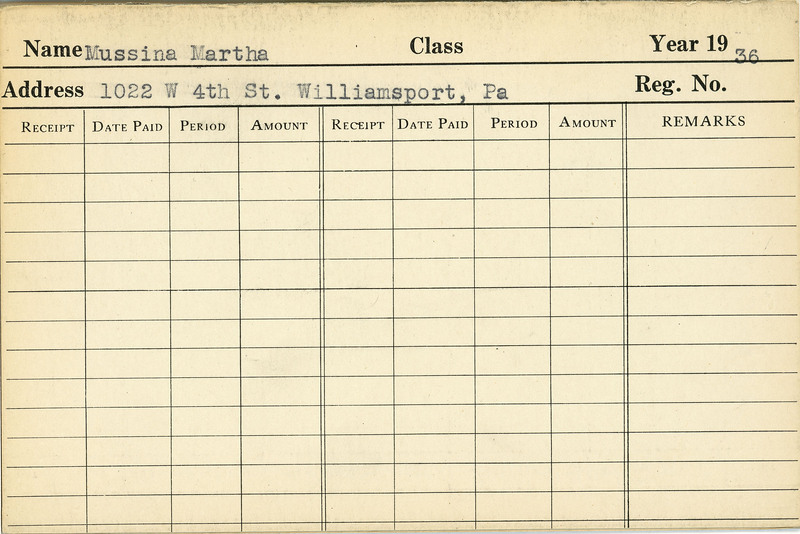 Name Mussina Martha Class Year 19 36
Address 1022 W 4th St. Williamsport, Pa Reg. No.
RECEIPT DATE PAID PERIOD AMOUNT RECEIPT DATE PAID PERIOD AMOUNT REMARKS